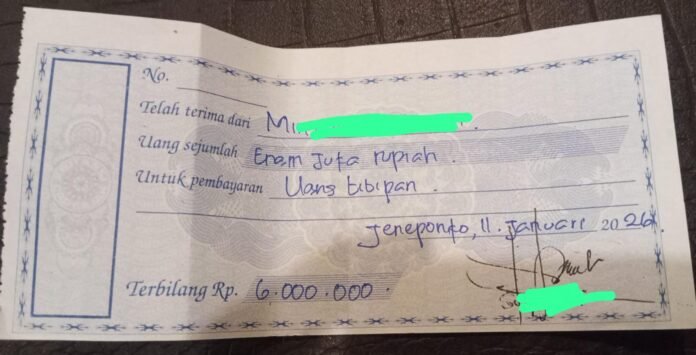 No.
Telah terima dari M
Uang sejumlah Enam juta rupiah.
Untuk pembayaran Uang titipan.
Jeneponto, 11. Januari 2026
Terbilang Rp. 6.000.000.